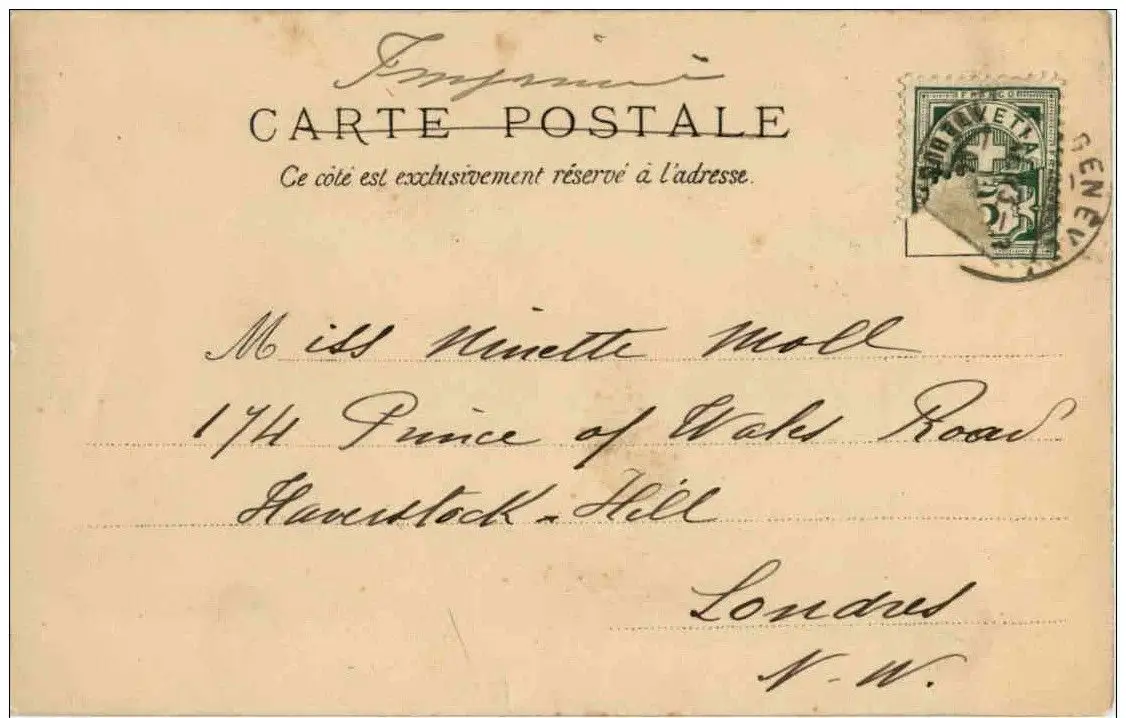 Imprimé
CARTE POSTALE
Ce côté est exclusivement réservé à l'adresse.
FRANCO
HELVETIA
GENÈV
Miss Ninette Moll
174 Prince of Wales Road
Haverstock-Hill
Londres
N-W.